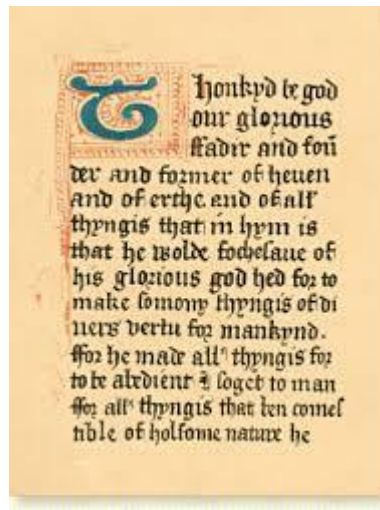 Thonkyd be god
our glorious
ffadir and foū
der and former of heuen
and of erthe and of all'
thyngis that in hym is
that he wolde fochesaue of
his glorious god hed for to
make somony thyngis of di
uers vertu for mankynd.
ffor he made all' thyngis for
to be abedient & soget to man
ffor all' thyngis that ben comes
tible of holsome nature he